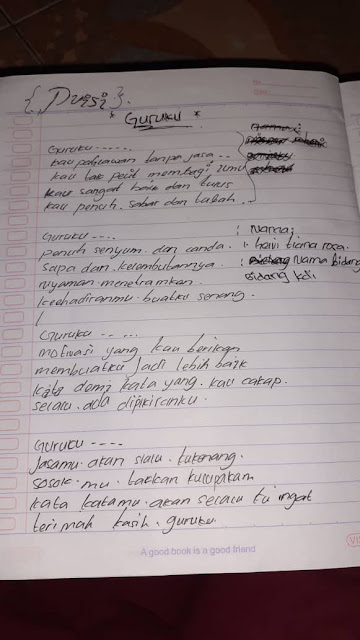 { Puisi }.
" GURUKU "
Guruku ......
kau pahlawan tanpa jasa ..
kau tak pelit membagi ilmu
kau sangat baik dan tulus
kau penuh sabar dan tabah .
Guruku ....
penuh senyum dan canda.
sapa dan kelembutannya.
nyaman menetramkan.
kehadiranmu buatku senang.
Nama:
: haivi tiana rosa.
: Nama bidang
bidang kdi
Guruku -- ...
motivasi yang kau berikan
membuatku jadi lebih baik
kata demi kata yang kau cakap.
selalu ada dipikiranku.
Guruku ----
Jasamu akan slalu kukenang.
sosok mu takkan kulupakan
kata katamu akan selalu ku ingat
terimah kasih guruku.
A good book is a good friend